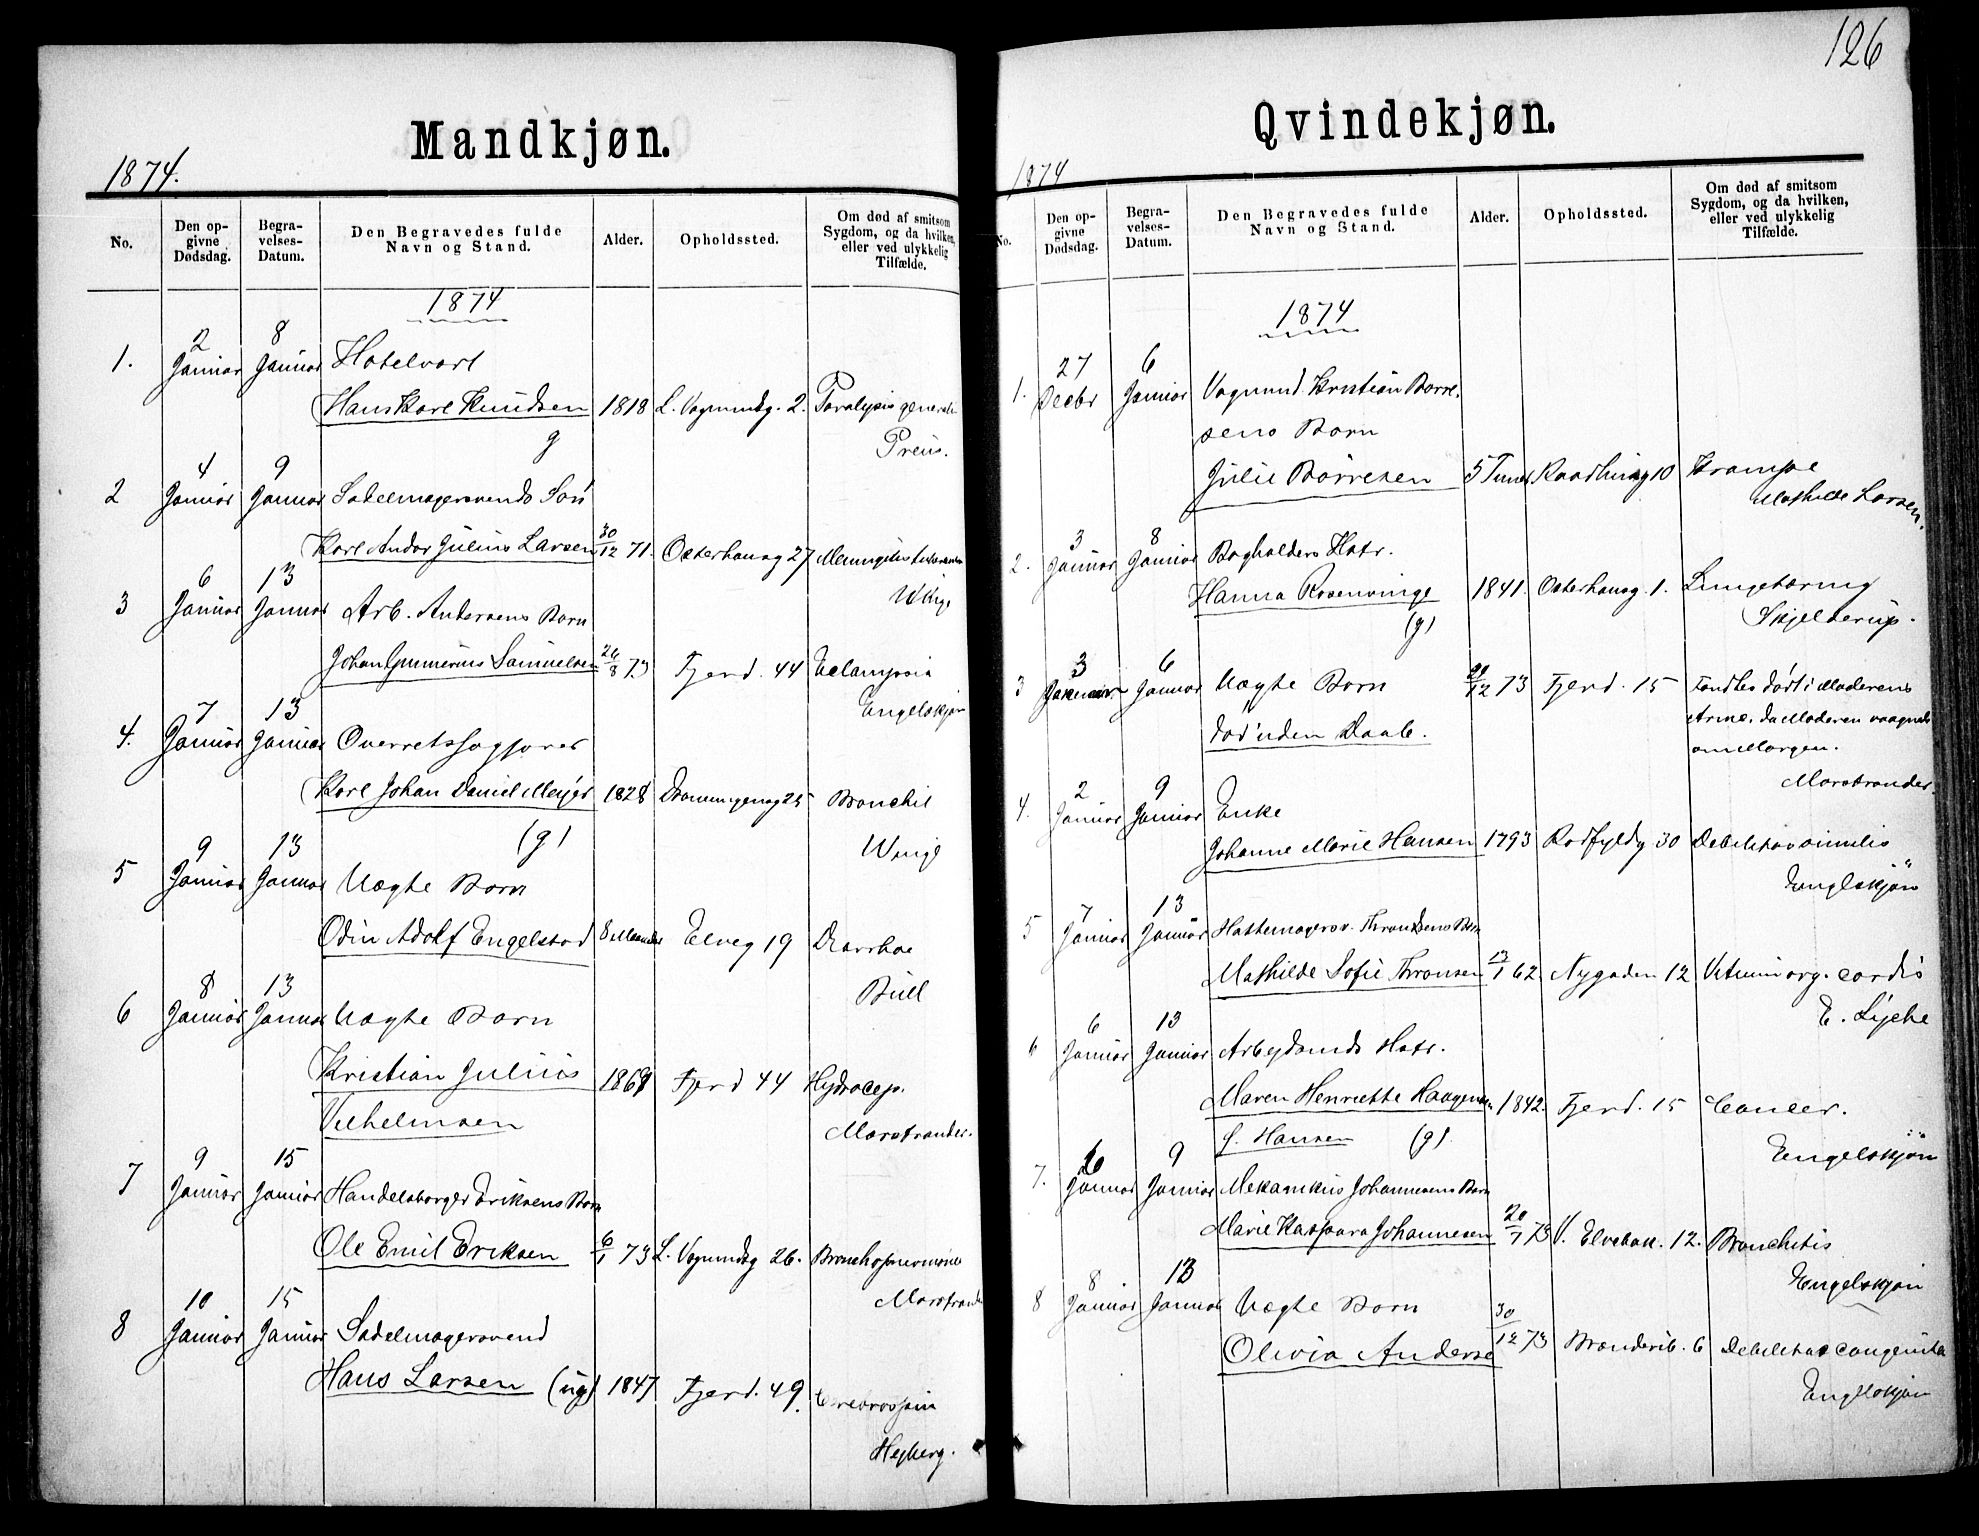 Mandkjøn.
1874.
No.
Den op-
givne
Dødsdag.
Begra-
velses-
Datum.
Den Begravedes fulde
Navn og Stand.
Alder.
Opholdssted.
Om død af smitsom
Sygdom, og da hvilken,
eller ved ulykkelig
Tilfælde.
1874
1. 2 Januar 8 Januar Hotelvært
Hans Karl Knudsen 1818 L. Vognmdsg. 2. Paralysis general
g Preus.
2 4 Januar 9 Januar Sadelmagersvends Søn
Karl Andor Julius Larsen 30/12 71. Osterhausg 27
Winge
3 6 Januar 13 Januar Arb. Andersens Barn
Johan Gunnerius Samuelsen 26/8 73 Fjerd. 44 Eclampsia
Engelskjøn
4. 7 Januar 13 Januar Overretssagfører
Karl Johan Daniel Meyer 1828 Dronningensg 25 Bronchit
(g) Winge
5 9 Januar 13 Januar Uægte Barn
Odin Adolf Engelstad 8 Maaneder Elveg 19 Diarrhoe
Bull
6 8 Januar 13 Januar Uægte Barn
Kristian Julius 1869 Fjerd 44 Hydrocep.
Vilhelmsen Marstrander.
7 9 Januar 15 Januar Handelsborger Eriksens Barn
Ole Emil Eriksen 6/1 73 L. Vognmdsg 26. Bronchopneumonie
Marstrander
8 10 Januar 15 Januar Sadelmagersvend
Hans Larsen (ug) 1847 Fjerd. 49. Cerebrospin
Heyberg.
126
Qvindekjøn.
1874
No.
Den op-
givne
Dødsdag.
Begra-
velses-
Datum.
Den Begravedes fulde
Navn og Stand.
Alder.
Opholdssted.
Om død af smitsom
Sygdom, og da hvilken,
eller ved ulykkelig
Tilfælde.
1874
1. 27 Decbr 6 Januar Vognmd. Kristian Børre-
sens Barn
Julie Børresen 5 Timer Raadhusg 10 Krampe
Mathilde Larsen.
2. 3 Januar 8 Januar Bogholders Hstr.
Hanna Rosenvinge 1841. Osterhausg. 1. Lungetæring
(g) Skjelderup.
3 3 Januar 6 Januar Uægte Barn 20/12 73 Fjerd. 15 Fandtes død i Moderens
død uden Daab. Arme, da Moderen vaagnede
om Morgen.
Marstrander.
4. 2 Januar 9 Januar Enke
Johanne Marie Hansen 1793 Rødfyldg 30 Debilitas senilis
Engelskjøn
5 7 Januar 13 Januar Hattemagersv. Thronsens Barn
Mathilde Sofie Thronsen 13/1 62. Nygaden 12 Vitium org. cordis
E. Lyche
6 6 Januar 13 Januar Arbejdsmds Hstr.
Maren Henriette Haagensen 1842. Fjerd. 15 Cancer.
f. Hansen (g). Engelskjøn
7. 6 Januar 9 Januar Mekanikus Johannesens Barn
Marie Kaspara Johannesen 20/7 73 V. Elvebak. 12. Bronchitis
Engelskjøn
8 8 Januar 13 Januar Uægte Barn
Olivia Anderse 30/12 73 Branderib. 6 Debilitas congenita
Engelskjøn